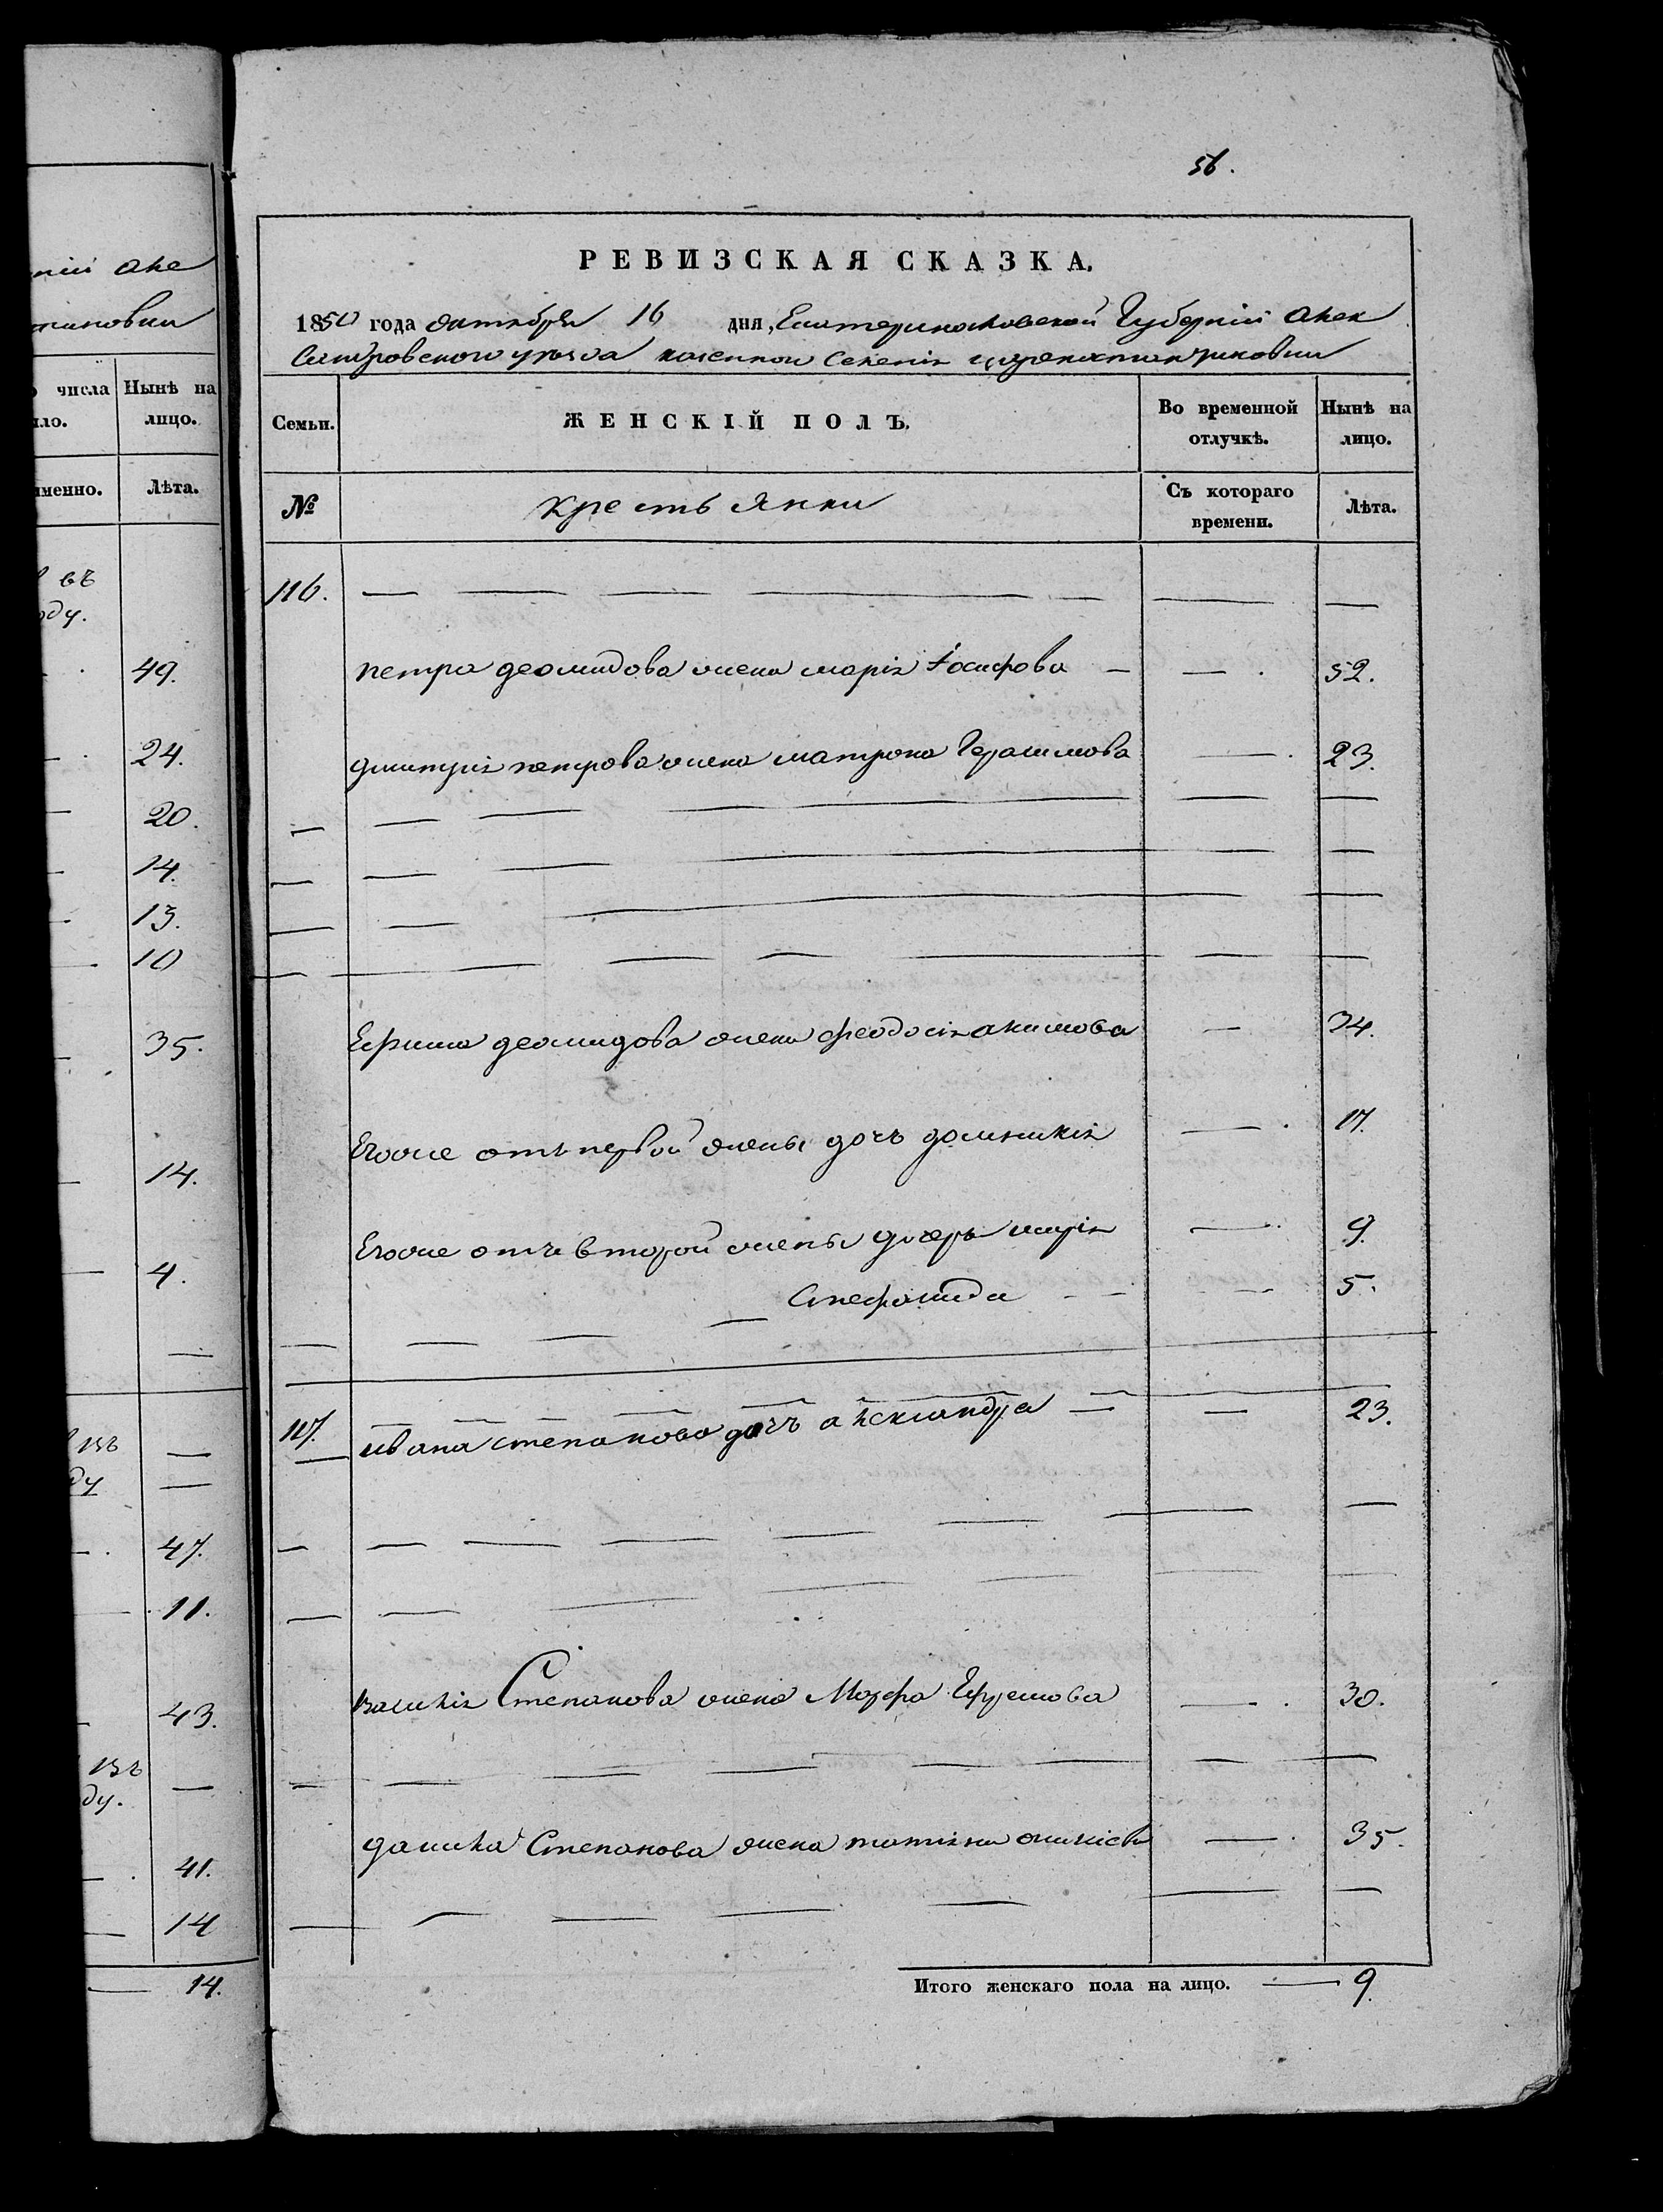 56.
РЕВИЗСКАЯ СКАЗКА.
1850 года октября 16 дня, Екатеринославской Губерніи Алек
сандровского уезда казенного селенія
Семьи. ЖЕНСКІЙ ПОЛЪ. Во временной отлучкѣ. Нынѣ на лицо.
№ Крестьянки Съ котораго времени. Лѣта.
116.
петра деомидова жена марія Іосифова 52.
дмитрія петрова жена матрона Герасимова 23.
Ефима деомидова жена феодосія акимова 34.
Егоже отъ первой жены дочь домникія 17.
Егоже отъ второй жены дочерь марія 9.
5.
117. ивана степанова дочь александра 23.
василія Степанова жена Марфа Ефремова 30.
данила Степанова жена татіяна 35.
Итого женскаго пола на лицо. 9.
ніи Але
числа Нынѣ на
ло. лицо.
именно. Лѣта.
въ
оду.
49.
24.
20.
14.
13.
10
35.
14.
4.
въ
ду
47.
11.
43.
въ
ду.
41.
14
14.